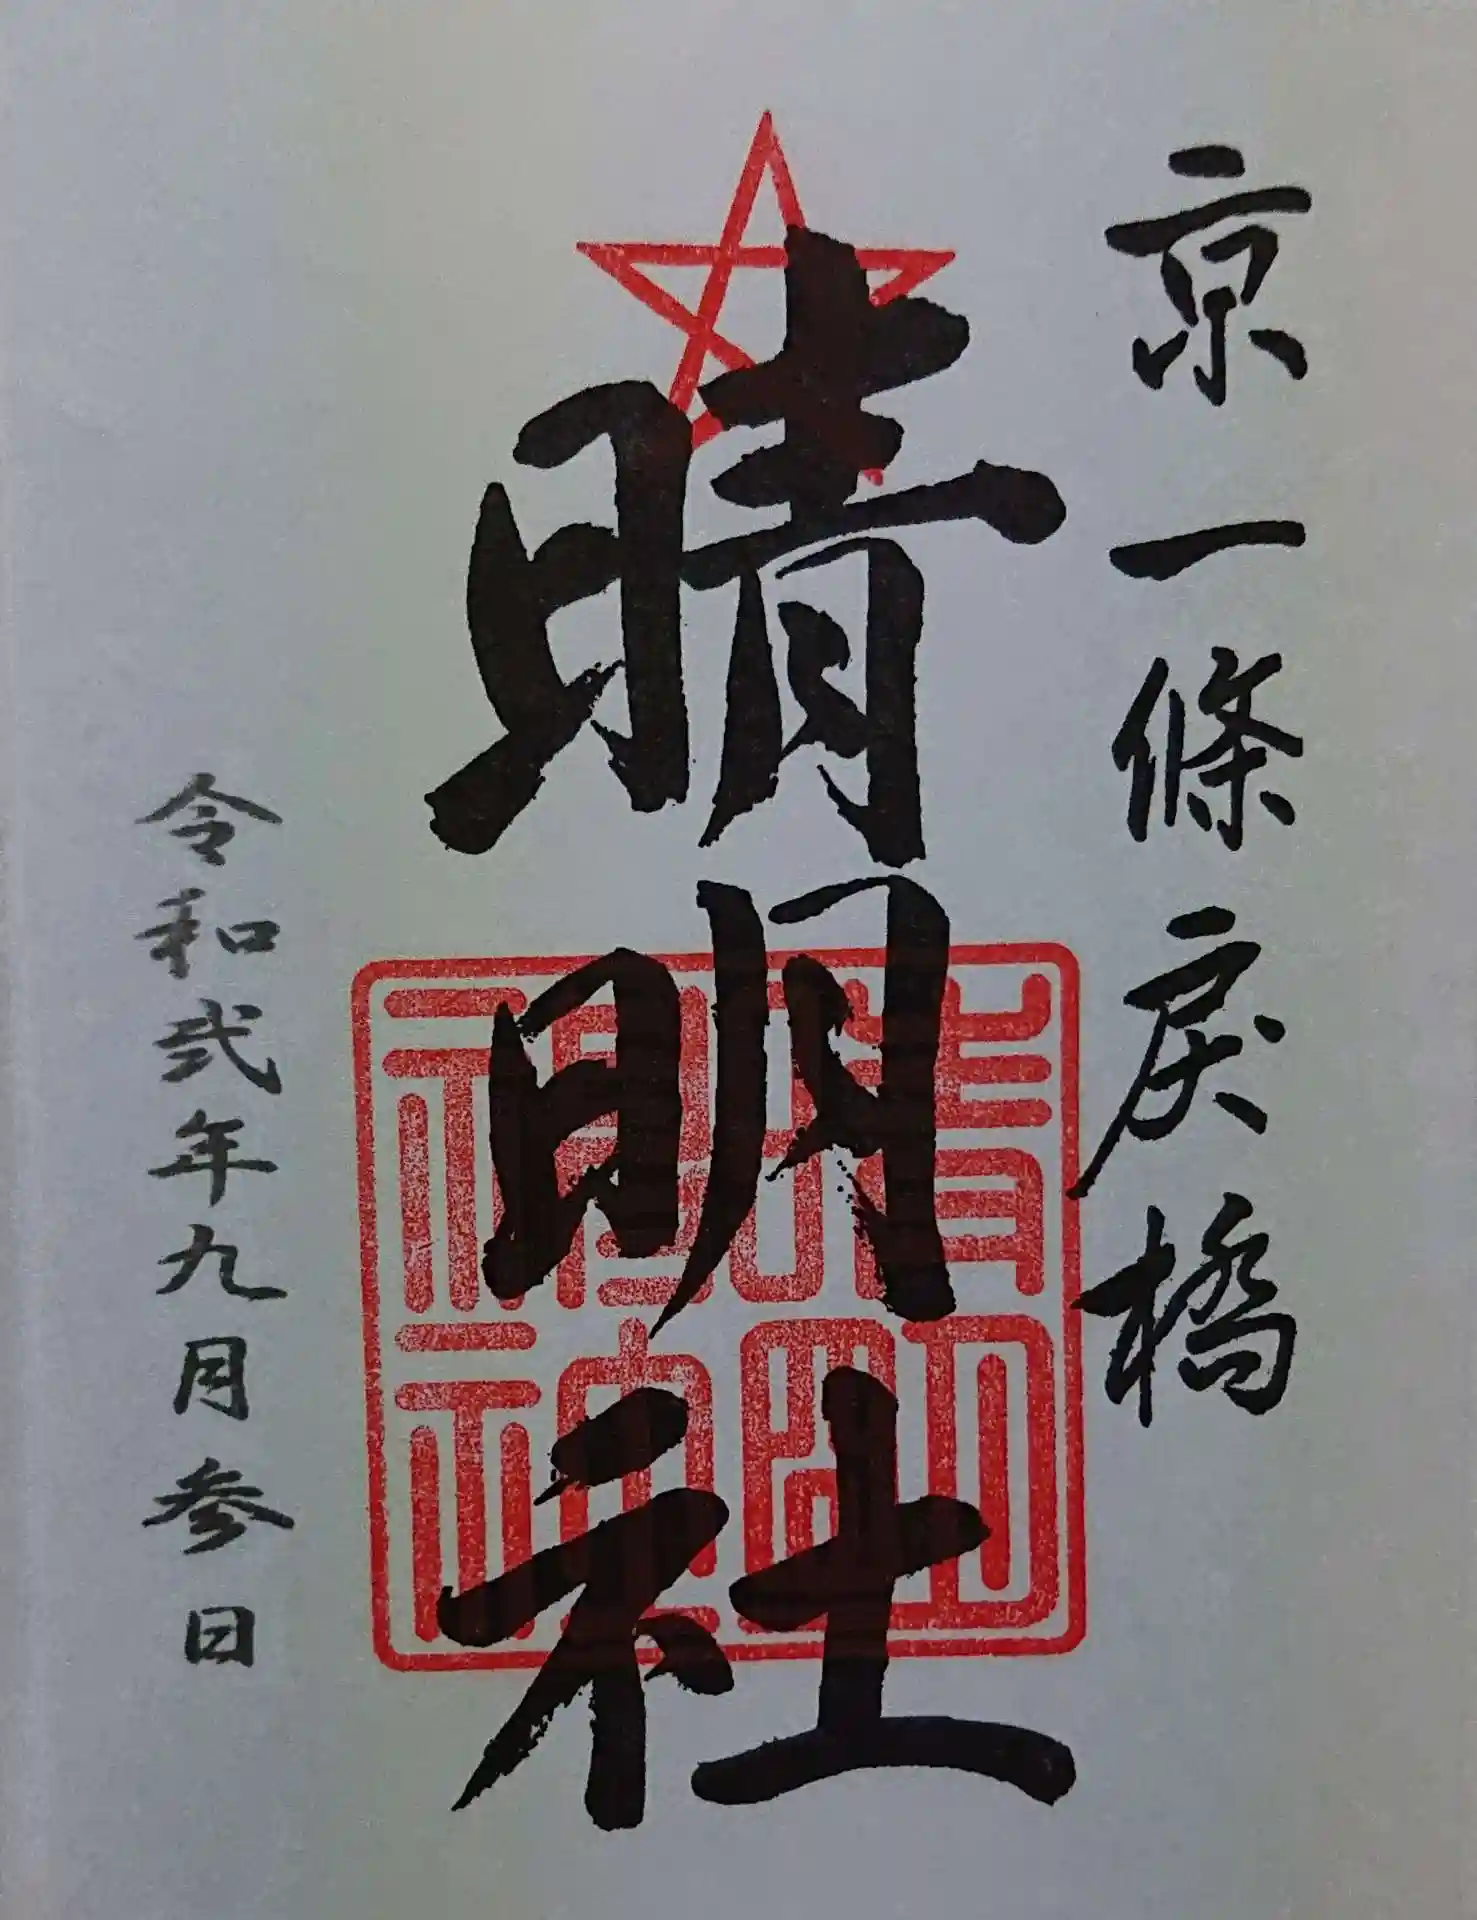 京一條戻橋
晴明社
晴明
神社
令和弐年九月参日